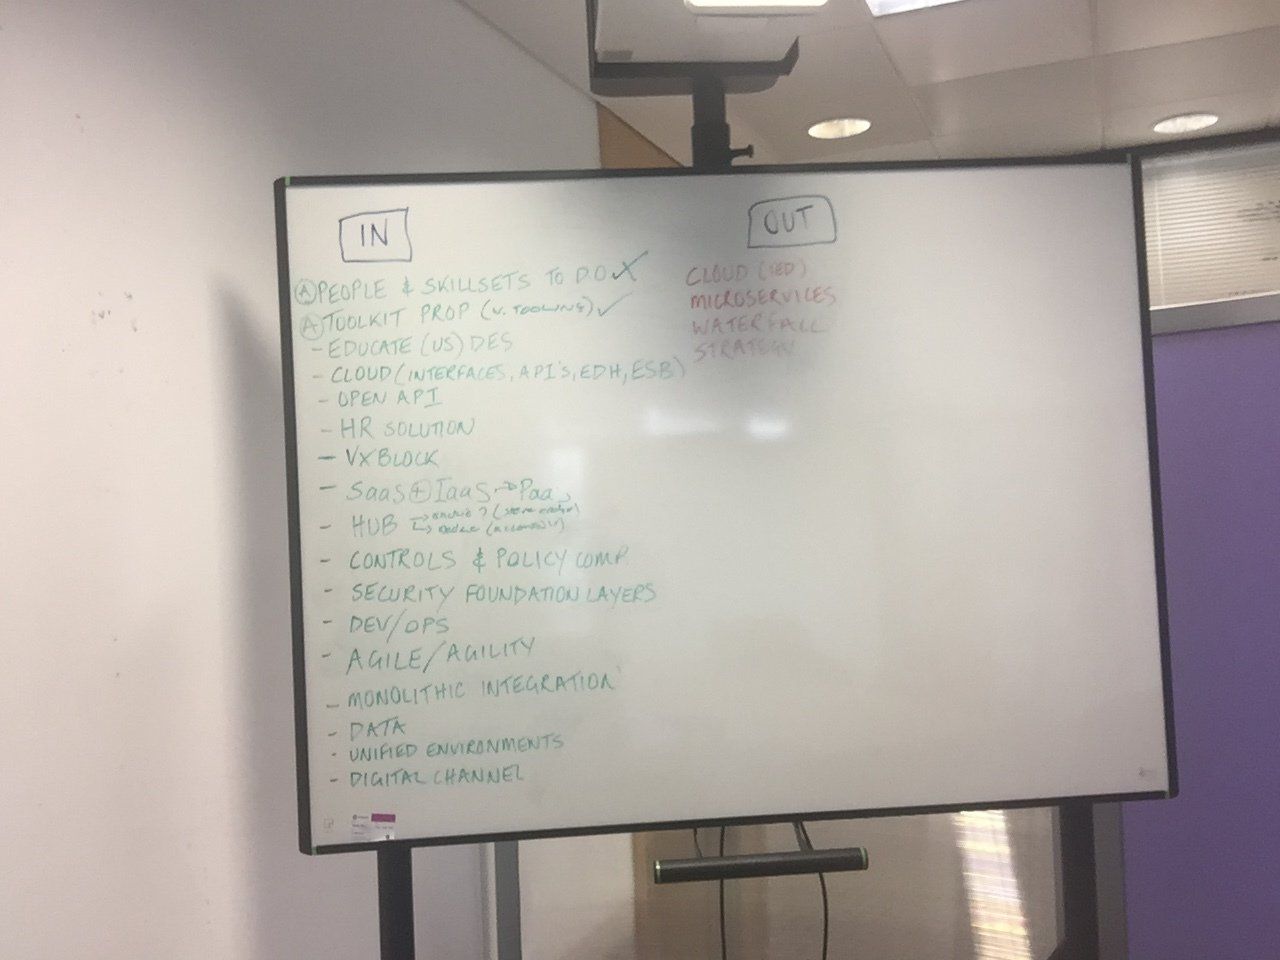 IN
OUT
Ⓐ PEOPLE & SKILLSETS TO DO
Ⓐ TOOLKIT PROP (V. TOOLING) ✓
- EDUCATE (US) DES
- CLOUD (INTERFACES, API'S, EDH, ESB)
- OPEN API
- HR SOLUTION
- VXBLOCK
- SaaS + IaaS → PaaS
- HUB
- CONTROLS & POLICY COMP.
- SECURITY FOUNDATION LAYERS
- DEV/OPS
- AGILE/AGILITY
- MONOLITHIC INTEGRATION
- DATA
- UNIFIED ENVIRONMENTS
- DIGITAL CHANNEL
CLOUD (IED)
MICROSERVICES
WATERFALL
STRATEGY